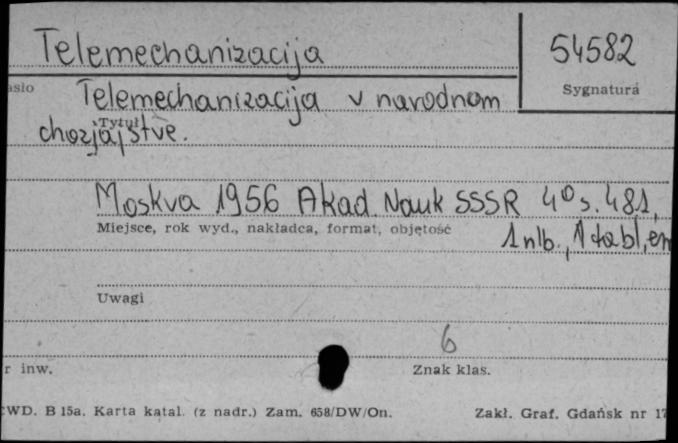 Telemechanizacija
54582
Sygnatura
asło
Telemechanizacija v narodnom
Tytuł
chozjajstve.
Moskva 1956 Akad. Nauk SSSR 4° s. 481,
Miejsce, rok wyd., nakładca, format, objętość
1 nlb., 1 tabl, err
Uwagi
6
r inw.
Znak klas.
CWD. B 15a. Karta katal. (z nadr.) Zam. 658/DW/On.
Zakł. Graf. Gdańsk nr 17